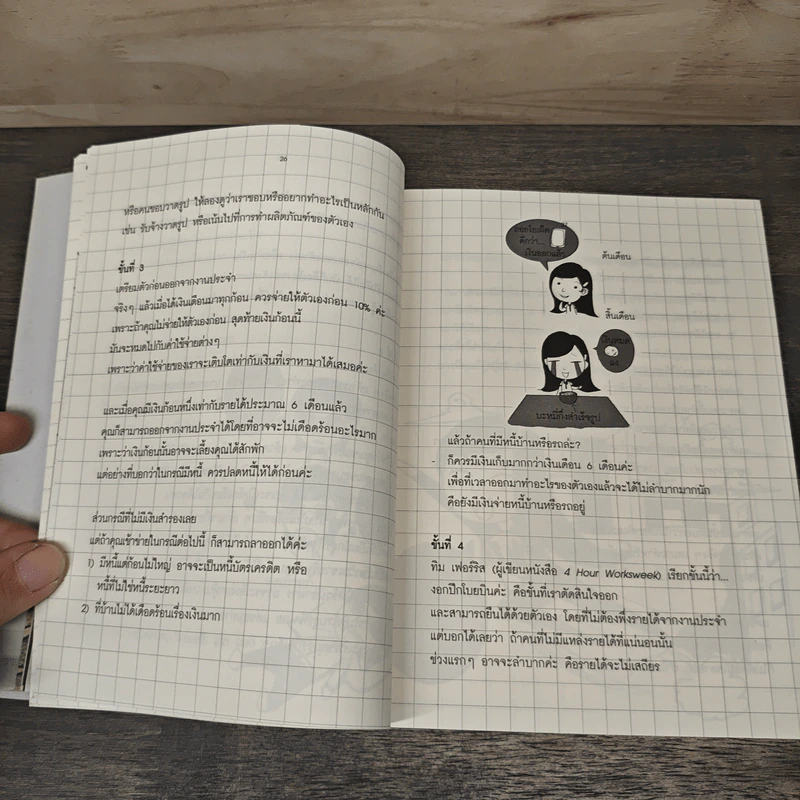 26
หรือคนชอบวาดรูป ให้ลองดูว่าเราชอบหรืออยากทำอะไรเป็นหลักกัน
เช่น รับจ้างวาดรูป หรือเน้นไปที่การทำผลิตภัณฑ์ของตัวเอง
ขั้นที่ 3
เตรียมตัวก่อนออกจากงานประจำ
จริงๆ แล้วเมื่อได้เงินเดือนมาทุกก้อน ควรจ่ายให้ตัวเองก่อน 10% ค่ะ
เพราะถ้าคุณไม่จ่ายให้ตัวเองก่อน สุดท้ายเงินก้อนนี้
มันจะหมดไปกับค่าใช้จ่ายต่างๆ
เพราะว่าค่าใช้จ่ายของเราจะเติบโตเท่ากับเงินที่เราหามาได้เสมอค่ะ
และเมื่อคุณมีเงินก้อนหนึ่งเท่ากับรายได้ประมาณ 6 เดือนแล้ว
คุณก็สามารถออกจากงานประจำได้โดยที่อาจจะไม่เดือดร้อนอะไรมาก
เพราะว่าเงินก้อนนั้นอาจจะเลี้ยงคุณได้สักพัก
แต่อย่างที่บอกว่าในกรณีมีหนี้ ควรปลดหนี้ให้ได้ก่อนค่ะ
ส่วนกรณีที่ไม่มีเงินสำรองเลย
แต่ถ้าคุณเข้าข่ายในกรณีต่อไปนี้ ก็สามารถลาออกได้ค่ะ
1) มีหนี้แต่ก้อนไม่ใหญ่ อาจจะเป็นหนี้บัตรเครดิต หรือ
หนี้ที่ไม่ใช่หนี้ระยะยาว
2) ที่บ้านไม่ได้เดือดร้อนเรื่องเงินมาก
ดีกว่า...
เงินออกแล้ว
ต้นเดือน
สิ้นเดือน
เงินหมด
บะหมี่กึ่งสำเร็จรูป
แล้วถ้าคนที่มีหนี้บ้านหรือรถล่ะ?
- ก็ควรมีเงินเก็บมากกว่าเงินเดือน 6 เดือนค่ะ
เพื่อที่เวลาออกมาทำอะไรของตัวเองแล้วจะได้ไม่ลำบากมากนัก
คือยังมีเงินจ่ายหนี้บ้านหรือรถอยู่
ขั้นที่ 4
ทิม เฟอร์ริส (ผู้เขียนหนังสือ 4 Hour Worksweek) เรียกขั้นนี้ว่า...
งอกปีกโบยบินค่ะ คือขั้นที่เราตัดสินใจออก
และสามารถยืนได้ด้วยตัวเอง โดยที่ไม่ต้องพึ่งรายได้จากงานประจำ
แต่บอกได้เลยว่า ถ้าคนที่ไม่มีแหล่งรายได้ที่แน่นอนนั้น
ช่วงแรกๆ อาจจะลำบากค่ะ คือรายได้จะไม่เสถียร